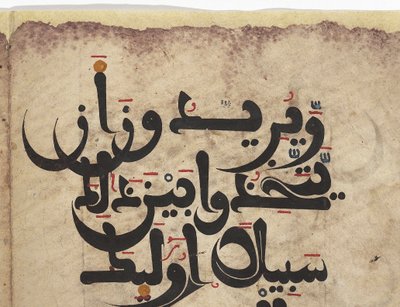 وَيُرِيدُونَ أَن
يَتَّخِذُوا بَيْنَ ذَلِكَ
سَبِيلًا أُولَئِكَ